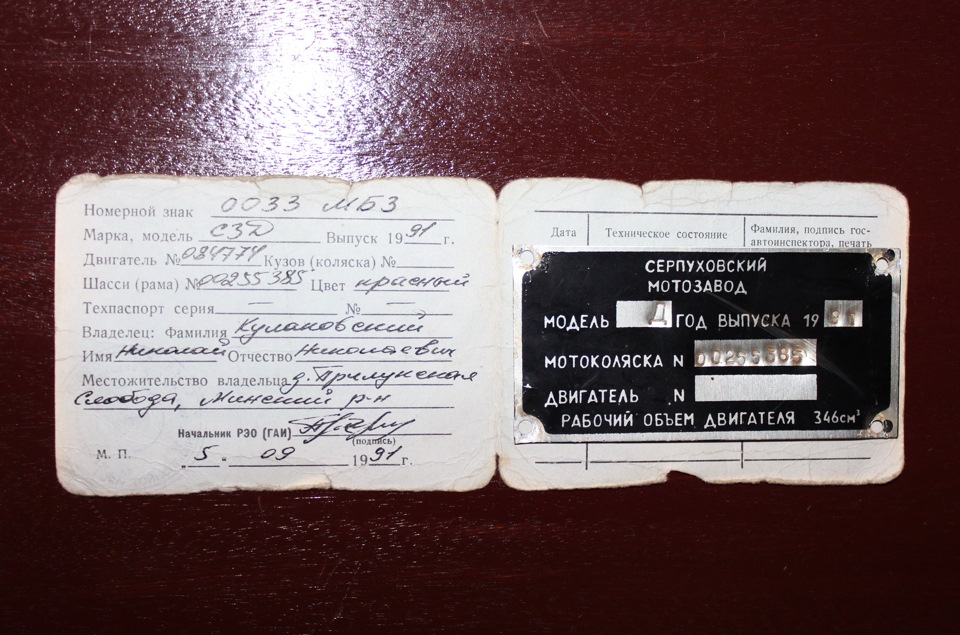 Номерной знак 0033 МБЗ
Марка, модель СЗД Выпуск 1991 г.
Двигатель № Кузов (коляска) №
Шасси (рама) № 00255385 Цвет красный
Техпаспорт серия — № —
Владелец: Фамилия Кулаковский
Имя Николай Отчество Николаевич
Местожительство владельца д. Прилукская
Слобода, Минский р-н
Начальник РЭО (ГАИ)
(подпись)
М. П. „5“ 09 1991 г.
Дата Техническое состояние Фамилия, подпись гос-
автоинспектора, печать
СЕРПУХОВСКИЙ
МОТОЗАВОД
МОДЕЛЬ Д ГОД ВЫПУСКА 1991
МОТОКОЛЯСКА N 00255385
ДВИГАТЕЛЬ N
РАБОЧИЙ ОБЪЕМ ДВИГАТЕЛЯ 346см³